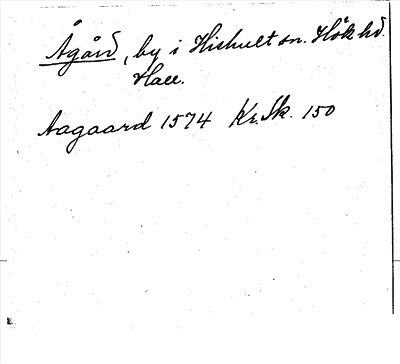 Ågård, by i Hishult sn. Hök hd.
Hall.
Aagaard 1574 Kr. Sk. 150